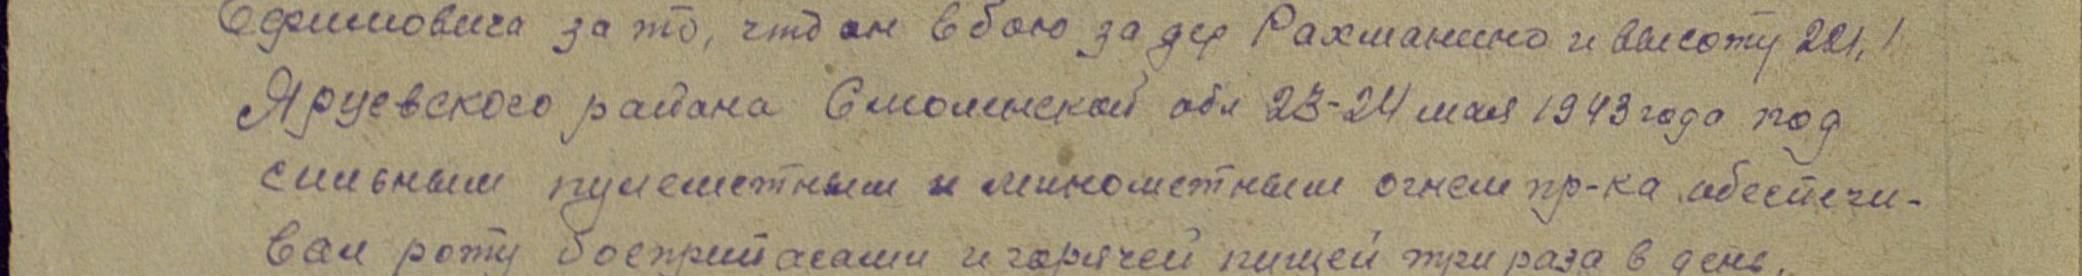 Ефимовича за то, что он в бою за дер Рахманино и высоту 221,1
Яруевского района Смоленской обл 23-24 мая 1943 года под
сильным пулеметным и минометным огнем пр-ка обеспечи-
вал роту боеприпасами и горячей пищей три раза в день.